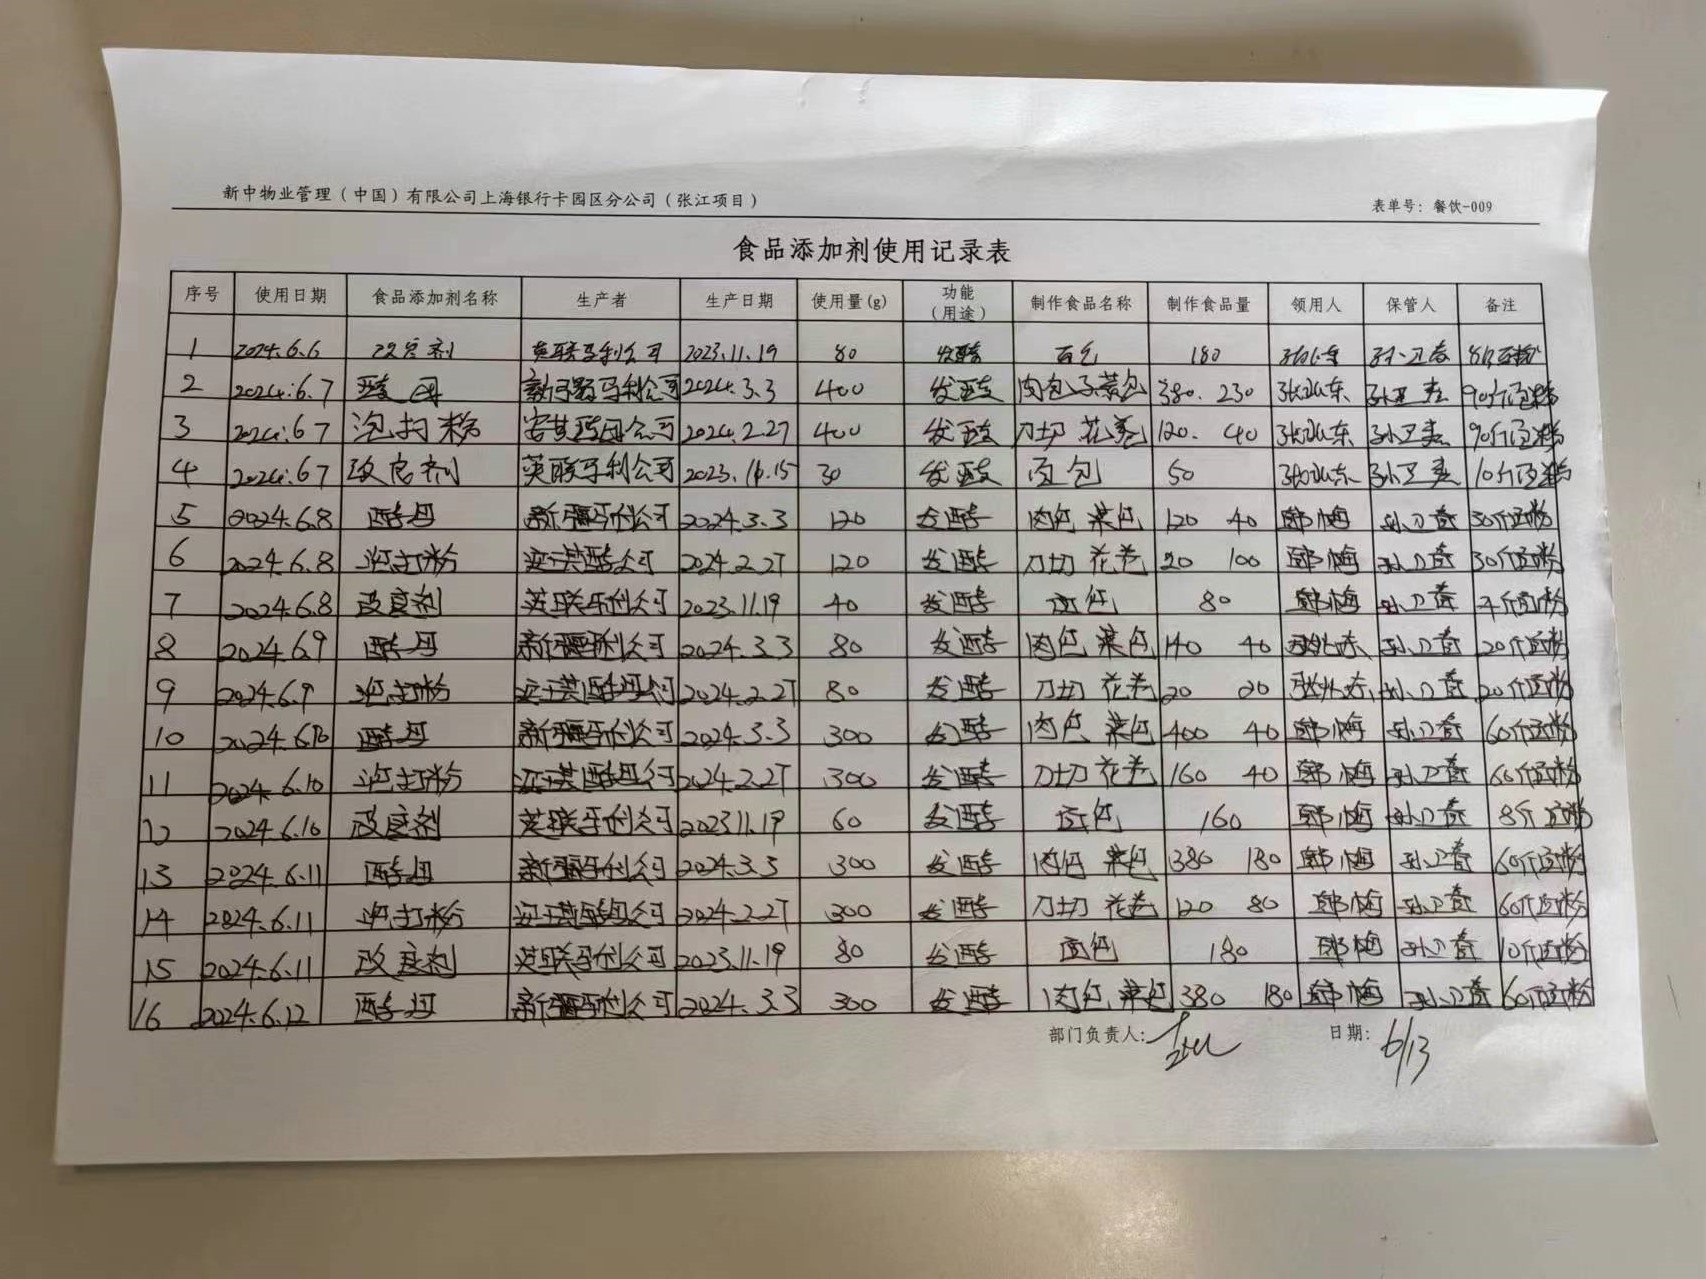 新中物业管理（中国）有限公司上海银行卡园区分公司（张江项目） 表单号：餐饮-009
食品添加剂使用记录表
序号 使用日期 食品添加剂名称 生产者 生产日期 使用量(g) 功能（用途） 制作食品名称 制作食品量 领用人 保管人 备注
1 2024.6.6 改良剂 英联马利公司 2023.11.19 80 发酵 面包 180
2 2024.6.7 酵母 新疆马利公司 2024.3.3 400 发酵 肉包 菜包 380. 230 张业东 孙卫春 90斤面粉
3 2024.6.7 泡打粉 安琪酵母公司 2024.2.27 400 发酵 刀切 花卷 120. 40 张业东 孙卫春 90斤面粉
4 2024.6.7 改良剂 英联马利公司 30 发酵 面包 50 张业东 孙卫春 10斤面粉
5 2024.6.8 酵母 新疆马利公司 2024.3.3 120 发酵 肉包 菜包 120 40 孙卫春 30斤面粉
6 2024.6.8 泡打粉 安琪酵公司 2024.2.27 120 发酵 刀切 花卷 20 100 孙卫春 30斤面粉
7 2024.6.8 改良剂 英联马利公司 2023.11.19 40 发酵 面包 80 孙卫春 斤面粉
8 2024.6.9 酵母 新疆马利公司 2024.3.3 80 发酵 肉包 菜包 140 40 孙卫春 20斤面粉
9 2024.6.9 泡打粉 安琪酵母公司 2024.2.27 80 发酵 刀切 花卷 20 20 孙卫春 20斤面粉
10 2024.6.10 酵母 新疆马利公司 2024.3.3 300 发酵 肉包 菜包 400 40 孙卫春 60斤面粉
11 2024.6.10 泡打粉 安琪酵母公司 2024.2.27 300 发酵 刀切 花卷 160 40 孙卫春 60斤面粉
12 2024.6.10 改良剂 英联马利公司 2023.11.19 60 发酵 面包 160 孙卫春 8斤面粉
13 2024.6.11 酵母 新疆马利公司 2024.3.3 300 发酵 肉包 菜包 380 180 孙卫春 60斤面粉
14 2024.6.11 泡打粉 安琪酵母公司 2024.2.27 300 发酵 刀切 花卷 120 80 孙卫春 60斤面粉
15 2024.6.11 改良剂 英联马利公司 2023.11.19 80 发酵 面包 180 孙卫春 10斤面粉
16 2024.6.12 酵母 新疆马利公司 2024.3.3 300 发酵 肉包 菜包 380 180 孙卫春 60斤面粉
部门负责人： 日期：6/13